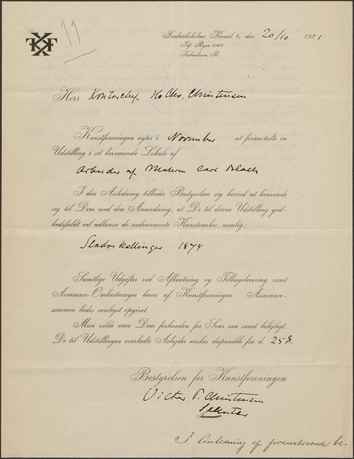 11
Frederiksholms Kanal 4, den 20/10 192
Tlf. Byen
København K.
Herr Kontorchef Christensen
Kunstforeningen agter i November at foranstalte en
Udstilling i sit herværende Lokale af
Arbejder af Maleren Carl Bloch
I den Anledning tillader Bestyrelsen sig herved at henvende
sig til Dem med den Anmodning, at De til denne Udstilling god-
hedsfuldt vil udlaane de nedennævnte Kunstværker, nemlig:
1874
Samtlige Udgifter ved Afhentning og Tilbagelevering samt
Assurance-Omkostninger bæres af Kunstforeningen. Assurance-
summen bedes venligst opgivet.
Man vilde være Dem forbunden for Svar saa snart belejligt.
De til Udstillingen ønskede Arbejder ønskes disponible fra d. 25
Bestyrelsen for Kunstforeningen
Victor P. Christensen
I Anledning af foranstaaende be-